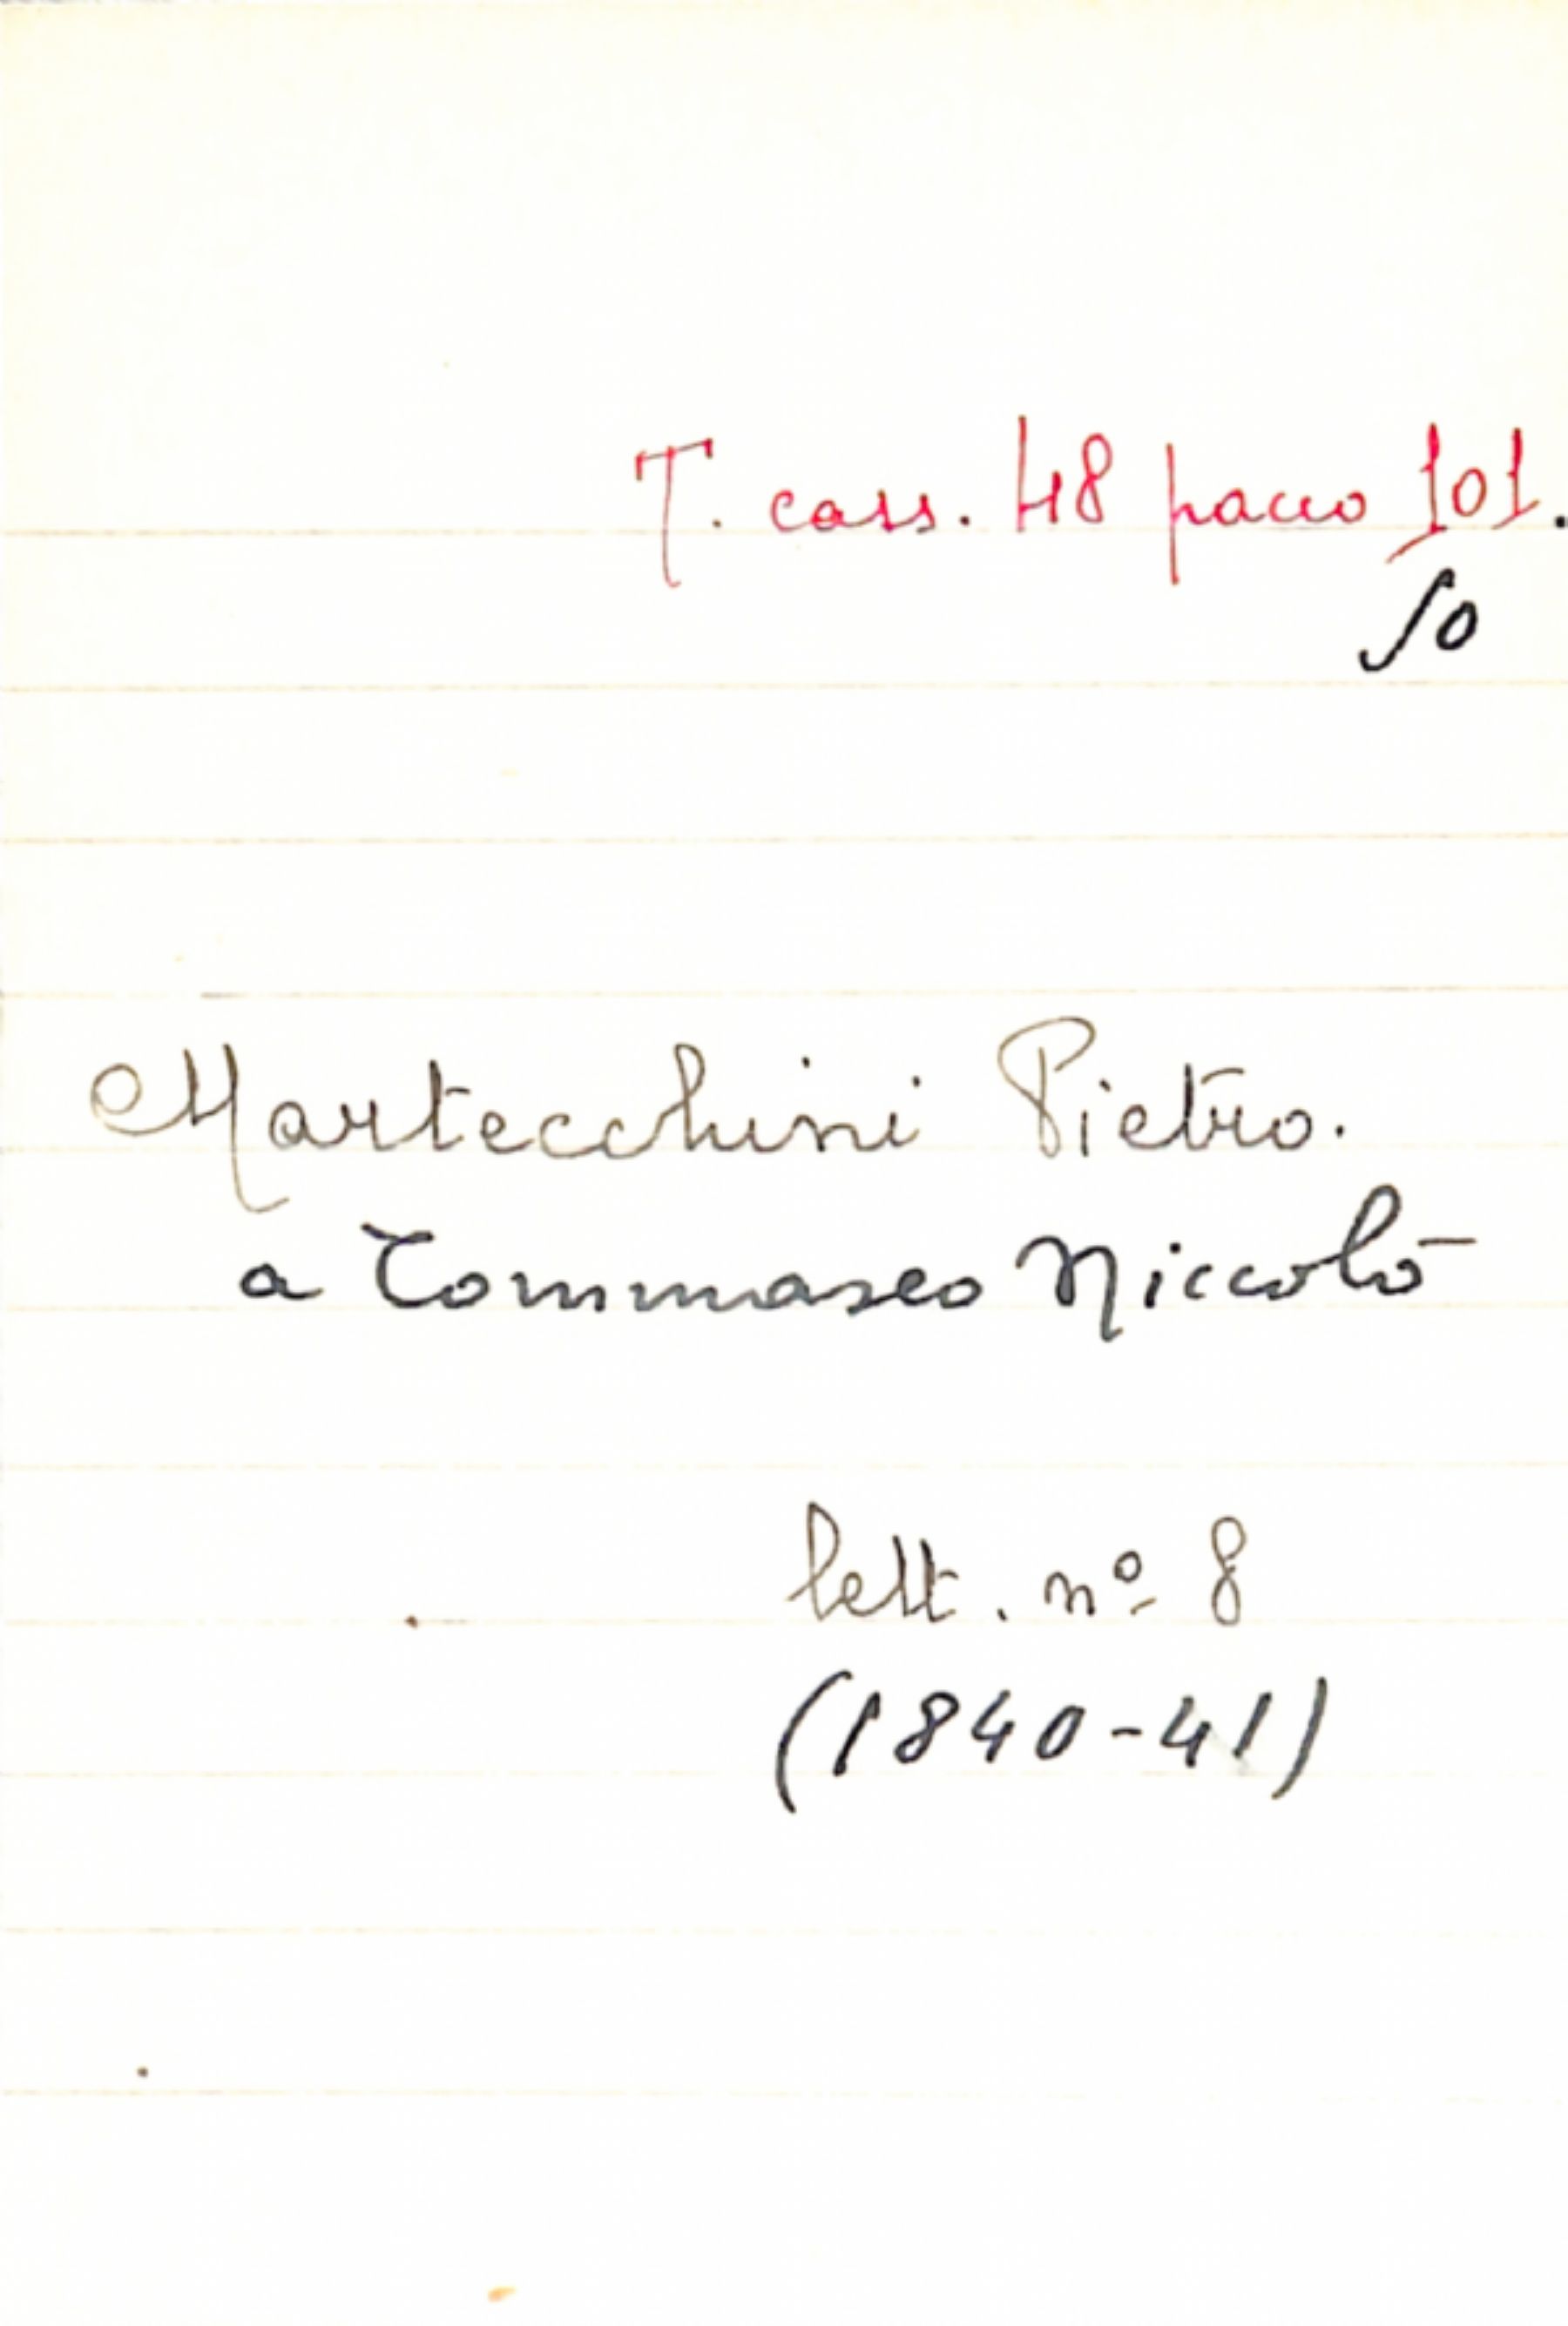 T. cass. 48 pacco 101.
50
Martecchini Pietro.
a Tommaseo Niccolò
lett. nº 8
(1840-41)